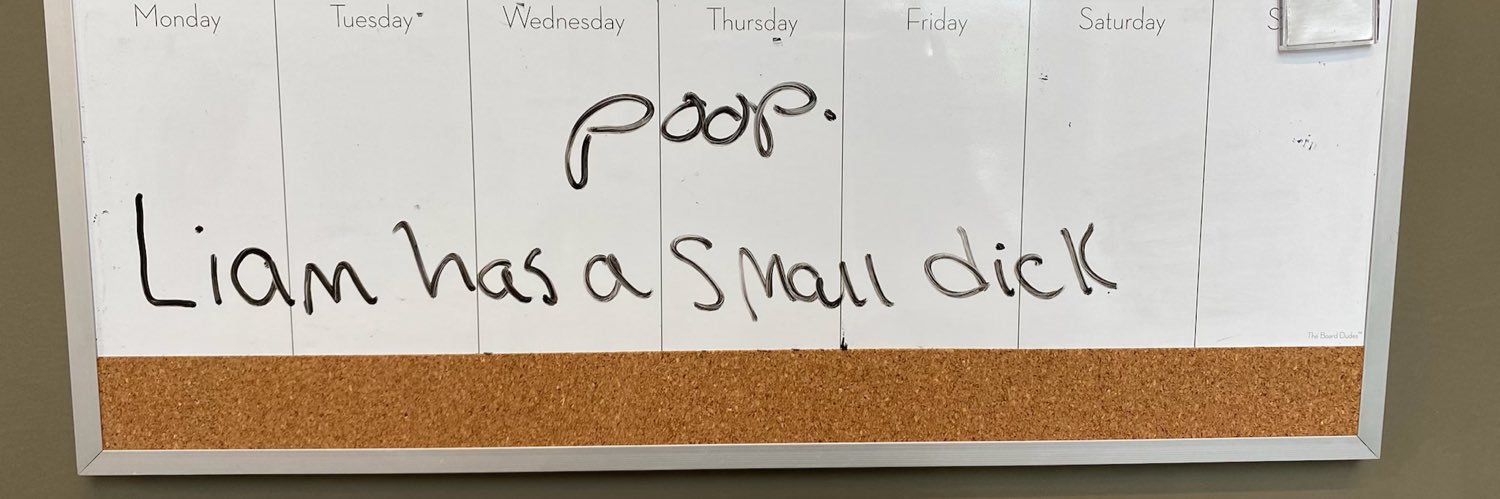 Monday Tuesday Wednesday Thursday Friday Saturday
poop.
Liam has a small dick
The Board Dudes™